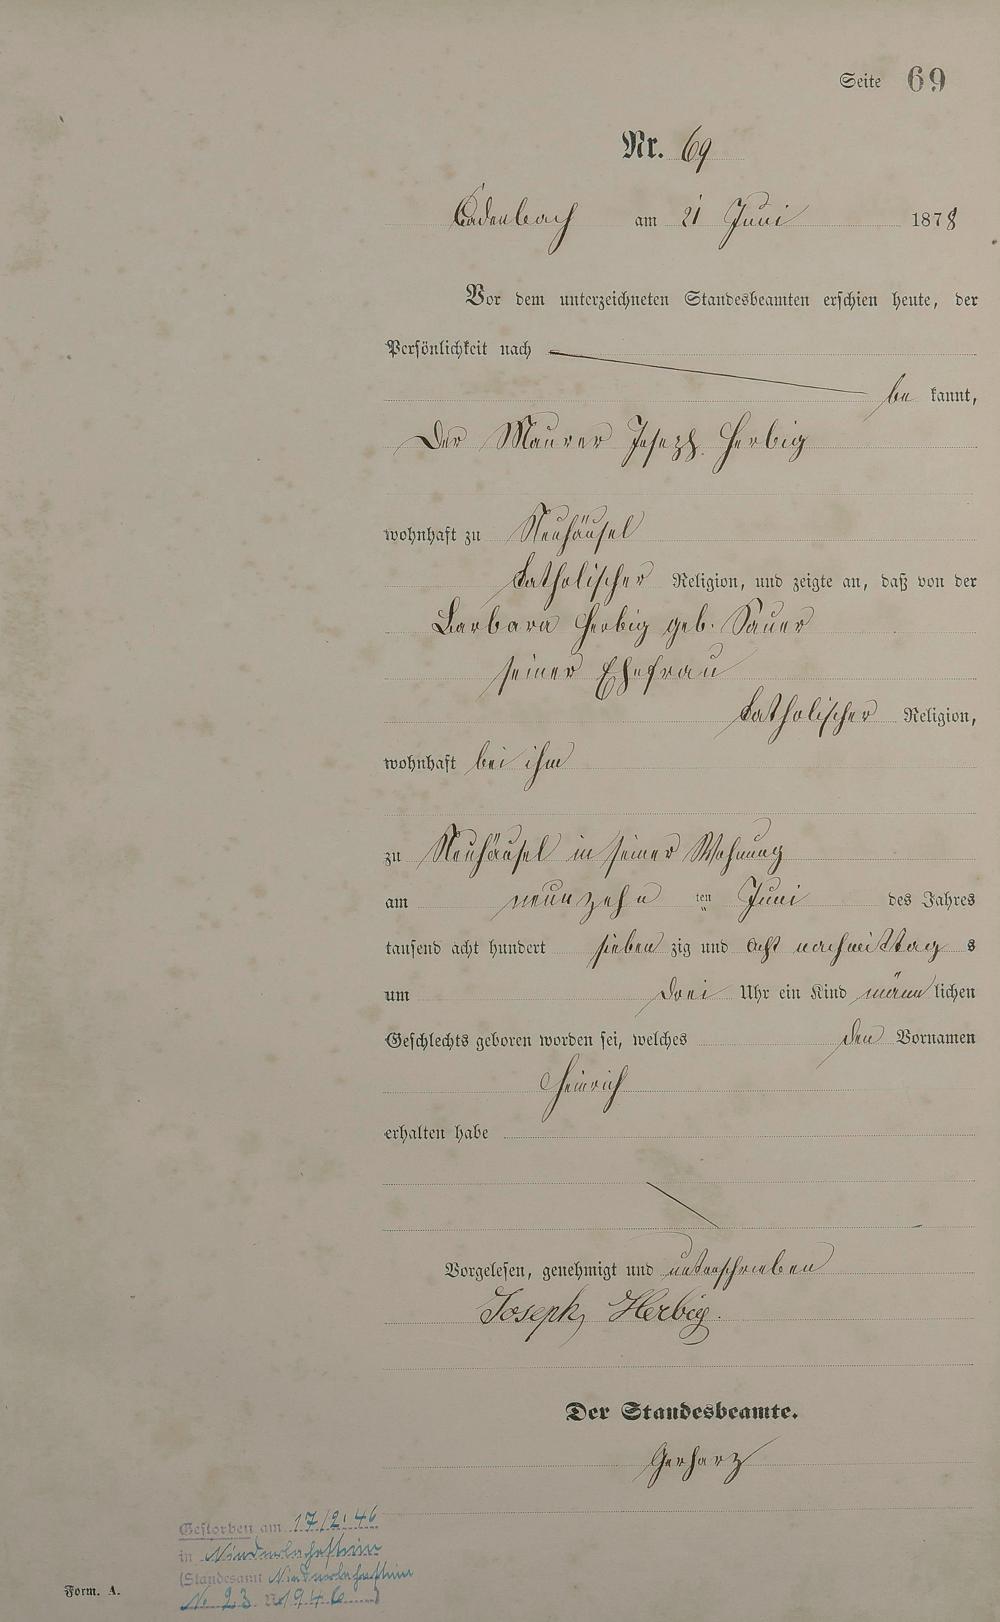 Seite 69
Nr. 69
Cadenbach am 21 Juni 1878
Vor dem unterzeichneten Standesbeamten erschien heute, der
Persönlichkeit nach
be kannt,
Der Maurer Joseph Herbig
wohnhaft zu Neuhäusel
katholischer Religion, und zeigte an, daß von der
Barbara Herbig geb. Sauer
seiner Ehefrau
katholischer Religion,
wohnhaft bei ihm
zu Neuhäusel in seiner Wohnung
am neunzehn ten Juni des Jahres
tausend acht hundert sieben zig und acht nachmittag s
um drei Uhr ein Kind männ lichen
Geschlechts geboren worden sei, welches den Vornamen
Heinrich
erhalten habe
Vorgelesen, genehmigt und unterschrieben
Joseph Herbig.
Der Standesbeamte.
Gerharz
Gestorben am 17/2.46
in Niederlahnstein
(Standesamt Niederlahnstein
No 23 1946)
Form. A.